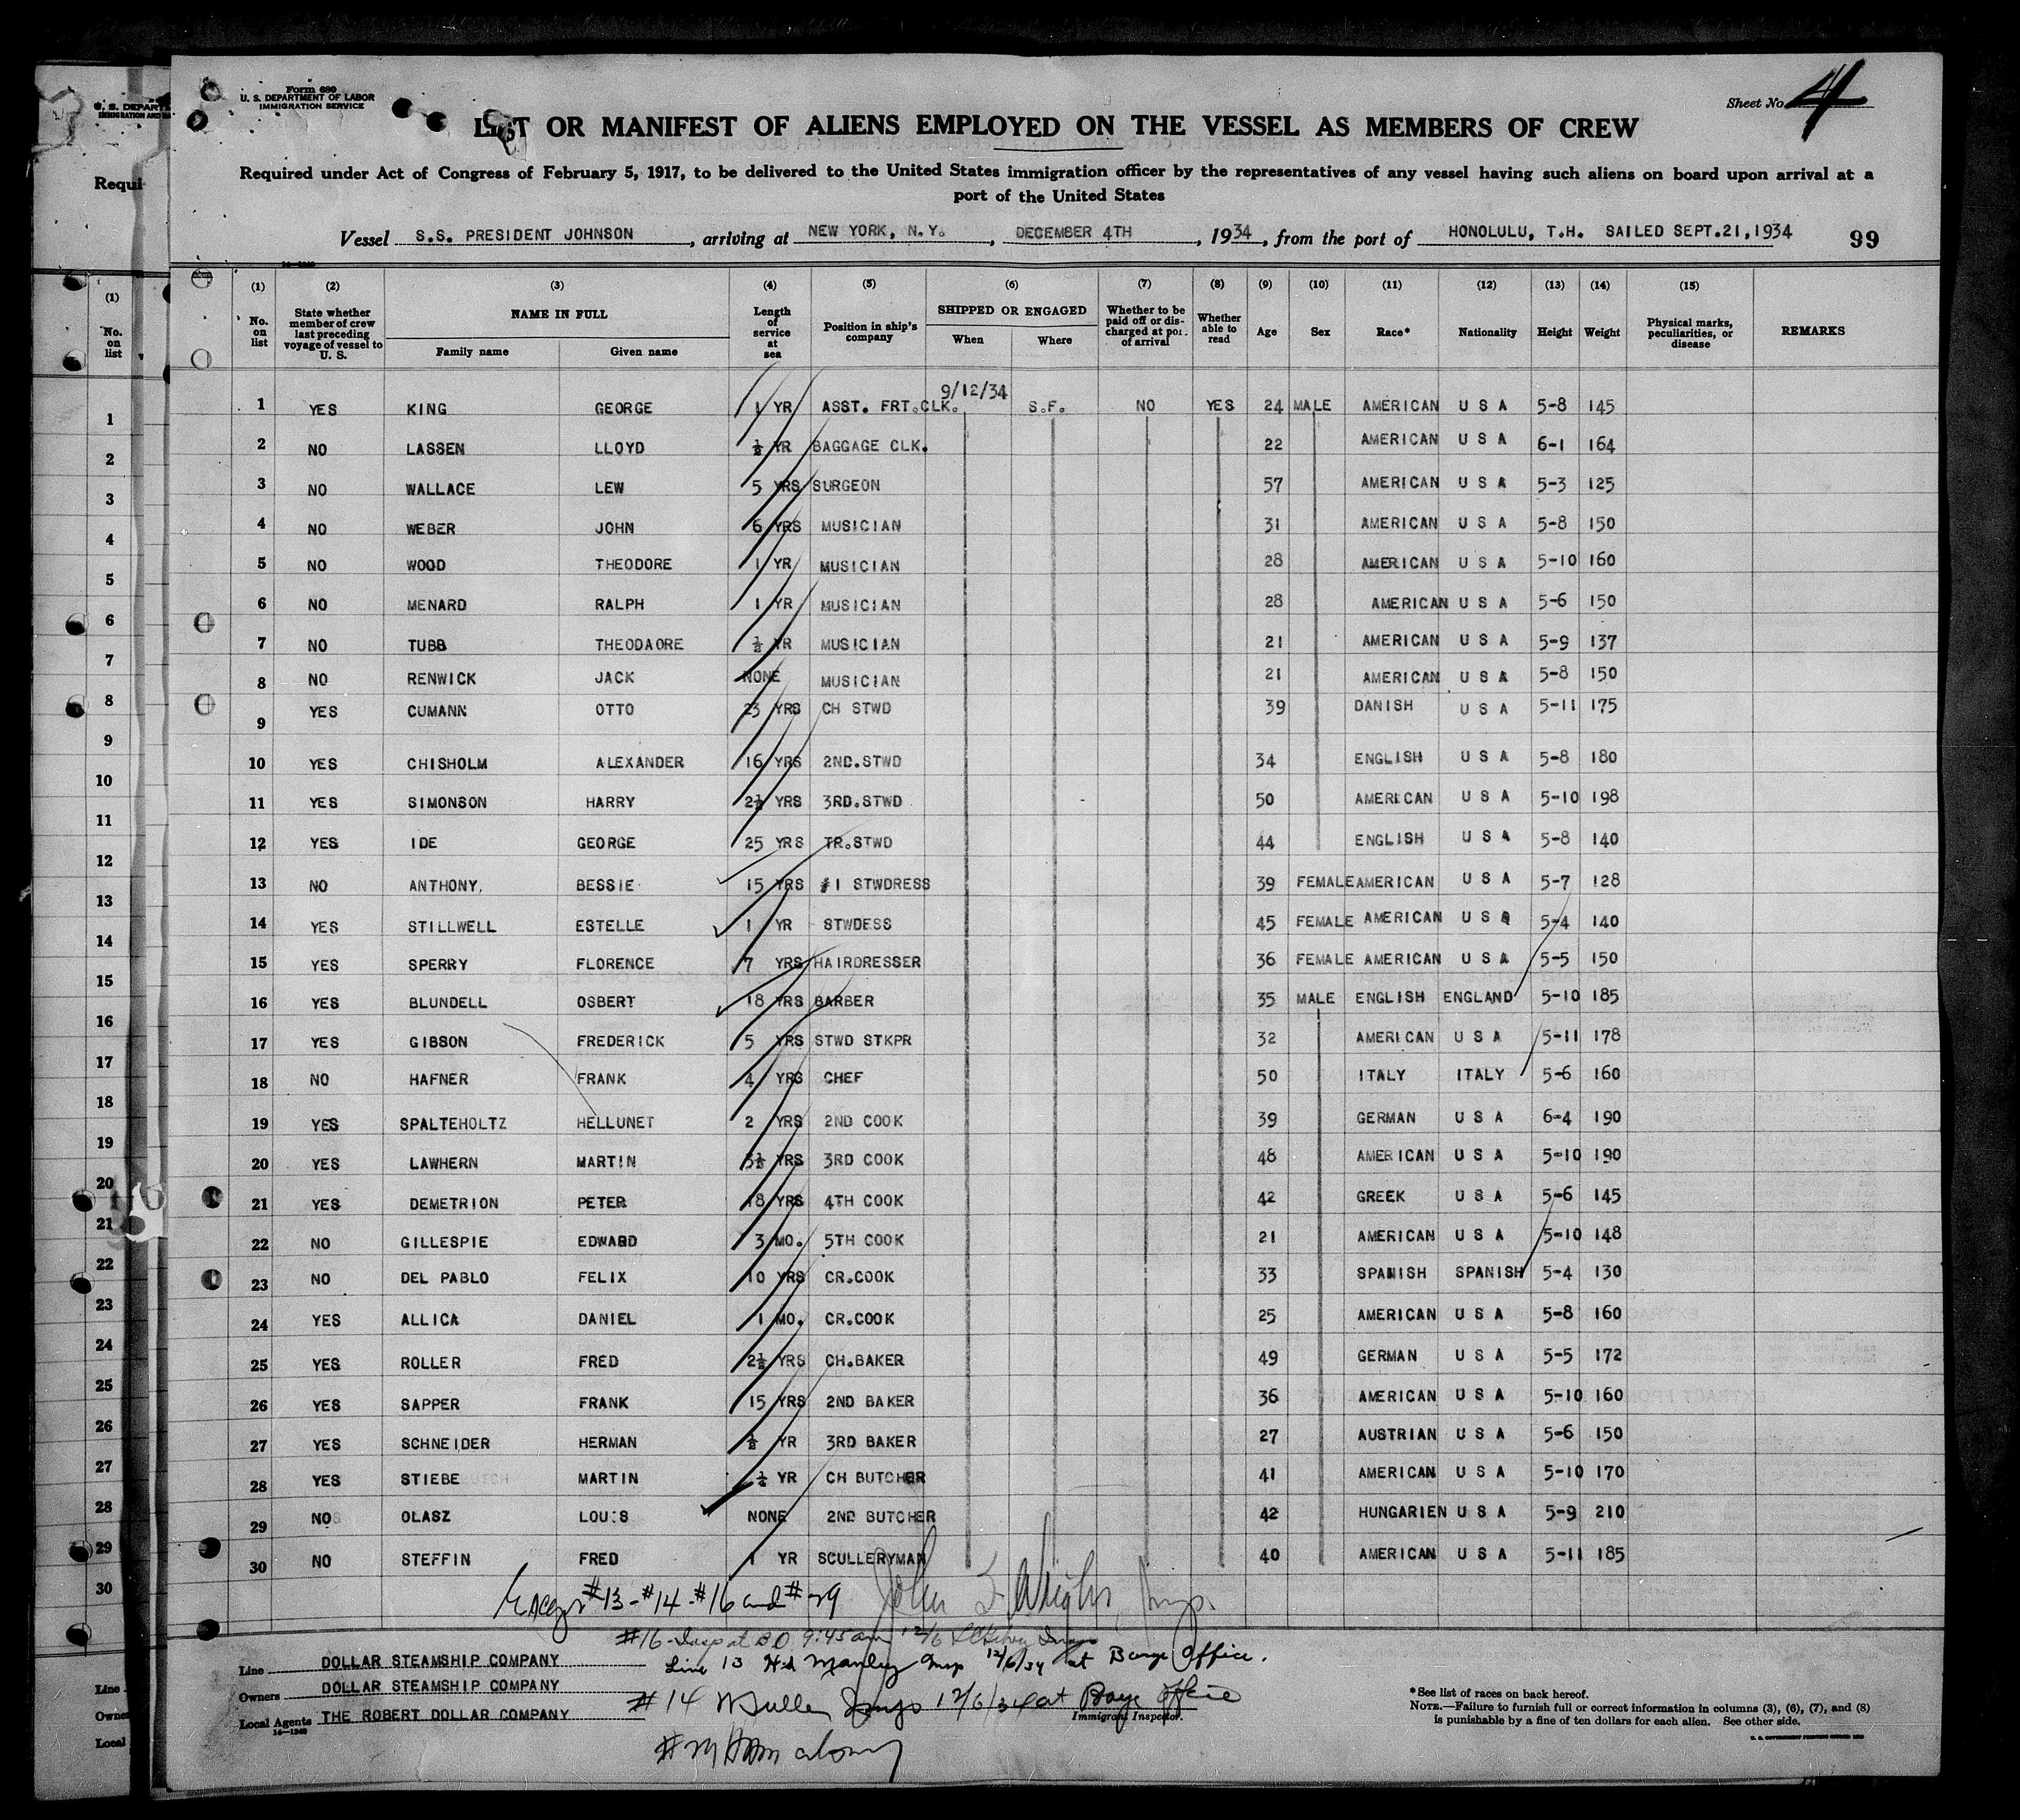 Form 680
U. S. DEPARTMENT OF LABOR
IMMIGRATION SERVICE
Sheet No. 4
LIST OR MANIFEST OF ALIENS EMPLOYED ON THE VESSEL AS MEMBERS OF CREW
Required under Act of Congress of February 5, 1917, to be delivered to the United States immigration officer by the representatives of any vessel having such aliens on board upon arrival at a
port of the United States
Vessel S.S. PRESIDENT JOHNSON, arriving at NEW YORK, N.Y., DECEMBER 4TH, 1934, from the port of HONOLULU, T.H. SAILED SEPT.21,1934 99
(1) No. on list
(2) State whether member of crew last preceding voyage of vessel to U. S.
(3) NAME IN FULL Family name Given name
(4) Length of service at sea
(5) Position in ship's company
(6) SHIPPED OR ENGAGED When Where
(7) Whether to be paid off or discharged at port of arrival
(8) Whether able to read
(9) Age
(10) Sex
(11) Race*
(12) Nationality
(13) Height
(14) Weight
(15) Physical marks, peculiarities, or disease
REMARKS
1 YES KING GEORGE 1 YR ASST. FRT.CLK. 9/12/34 S.F. NO YES 24 MALE AMERICAN U S A 5-8 145
2 NO LASSEN LLOYD ½ YR BAGGAGE CLK. 22 AMERICAN U S A 6-1 164
3 NO WALLACE LEW 5 YRS SURGEON 57 AMERICAN U S A 5-3 125
4 NO WEBER JOHN 6 YRS MUSICIAN 31 AMERICAN U S A 5-8 150
5 NO WOOD THEODORE 1 YR MUSICIAN 28 AMERICAN U S A 5-10 160
6 NO MENARD RALPH 1 YR MUSICIAN 28 AMERICAN U S A 5-6 150
7 NO TUBB THEODAORE ½ YR MUSICIAN 21 AMERICAN U S A 5-9 137
8 NO RENWICK JACK NONE MUSICIAN 21 AMERICAN U S A 5-8 150
9 YES CUMANN OTTO 23 YRS CH STWD 39 DANISH U S A 5-11 175
10 YES CHISHOLM ALEXANDER 16 YRS 2ND.STWD 34 ENGLISH U S A 5-8 180
11 YES SIMONSON HARRY 2½ YRS 3RD.STWD 50 AMERICAN U S A 5-10 198
12 YES IDE GEORGE 25 YRS TR.STWD 44 ENGLISH U S A 5-8 140
13 NO ANTHONY, BESSIE 15 YRS #1 STWDRESS 39 FEMALE AMERICAN U S A 5-7 128
14 YES STILLWELL ESTELLE 1 YR STWDESS 45 FEMALE AMERICAN U S A 5-4 140
15 YES SPERRY FLORENCE 7 YRS HAIRDRESSER 36 FEMALE AMERICAN U S A 5-5 150
16 YES BLUNDELL OSBERT 18 YRS BARBER 35 MALE ENGLISH ENGLAND 5-10 185
17 YES GIBSON FREDERICK 5 YRS STWD STKPR 32 AMERICAN U S A 5-11 178
18 NO HAFNER FRANK 4 YRS CHEF 50 ITALY ITALY 5-6 160
19 YES SPALTEHOLTZ HELLUNET 2 YRS 2ND COOK 39 GERMAN U S A 6-4 190
20 YES LAWHERN MARTIN 3½ YRS 3RD COOK 48 AMERICAN U S A 5-10 190
21 YES DEMETRION PETER 18 YRS 4TH COOK 42 GREEK U S A 5-6 145
22 NO GILLESPIE EDWARD 3 MO. 5TH COOK 21 AMERICAN U S A 5-10 148
23 NO DEL PABLO FELIX 10 YRS CR.COOK 33 SPANISH SPANISH 5-4 130
24 YES ALLICA DANIEL 1 MO. CR.COOK 25 AMERICAN U S A 5-8 160
25 YES ROLLER FRED 2½ YRS CH.BAKER 49 GERMAN U S A 5-5 172
26 YES SAPPER FRANK 15 YRS 2ND BAKER 36 AMERICAN U S A 5-10 160
27 YES SCHNEIDER HERMAN ½ YR 3RD BAKER 27 AUSTRIAN U S A 5-6 150
28 YES STIEBE MARTIN ½ YR CH BUTCHER 41 AMERICAN U S A 5-10 170
29 NO OLASZ LOUIS NONE 2ND BUTCHER 42 HUNGARIEN U S A 5-9 210
30 NO STEFFIN FRED 1 YR SCULLERYMAN 40 AMERICAN U S A 5-11 185
Except #13-#14-#16 and #29 John
#16- Insp at B.O. 9:45am 12/6
Line 13 Manley Insp 12/6/34 at Barge Office.
#14 Insp 12/6/34 at Barge Office
Immigrant Inspector.
Line DOLLAR STEAMSHIP COMPANY
Owners DOLLAR STEAMSHIP COMPANY
Local Agents THE ROBERT DOLLAR COMPANY
*See list of races on back hereof.
NOTE.—Failure to furnish full or correct information in columns (3), (6), (7), and (8)
is punishable by a fine of ten dollars for each alien. See other side.